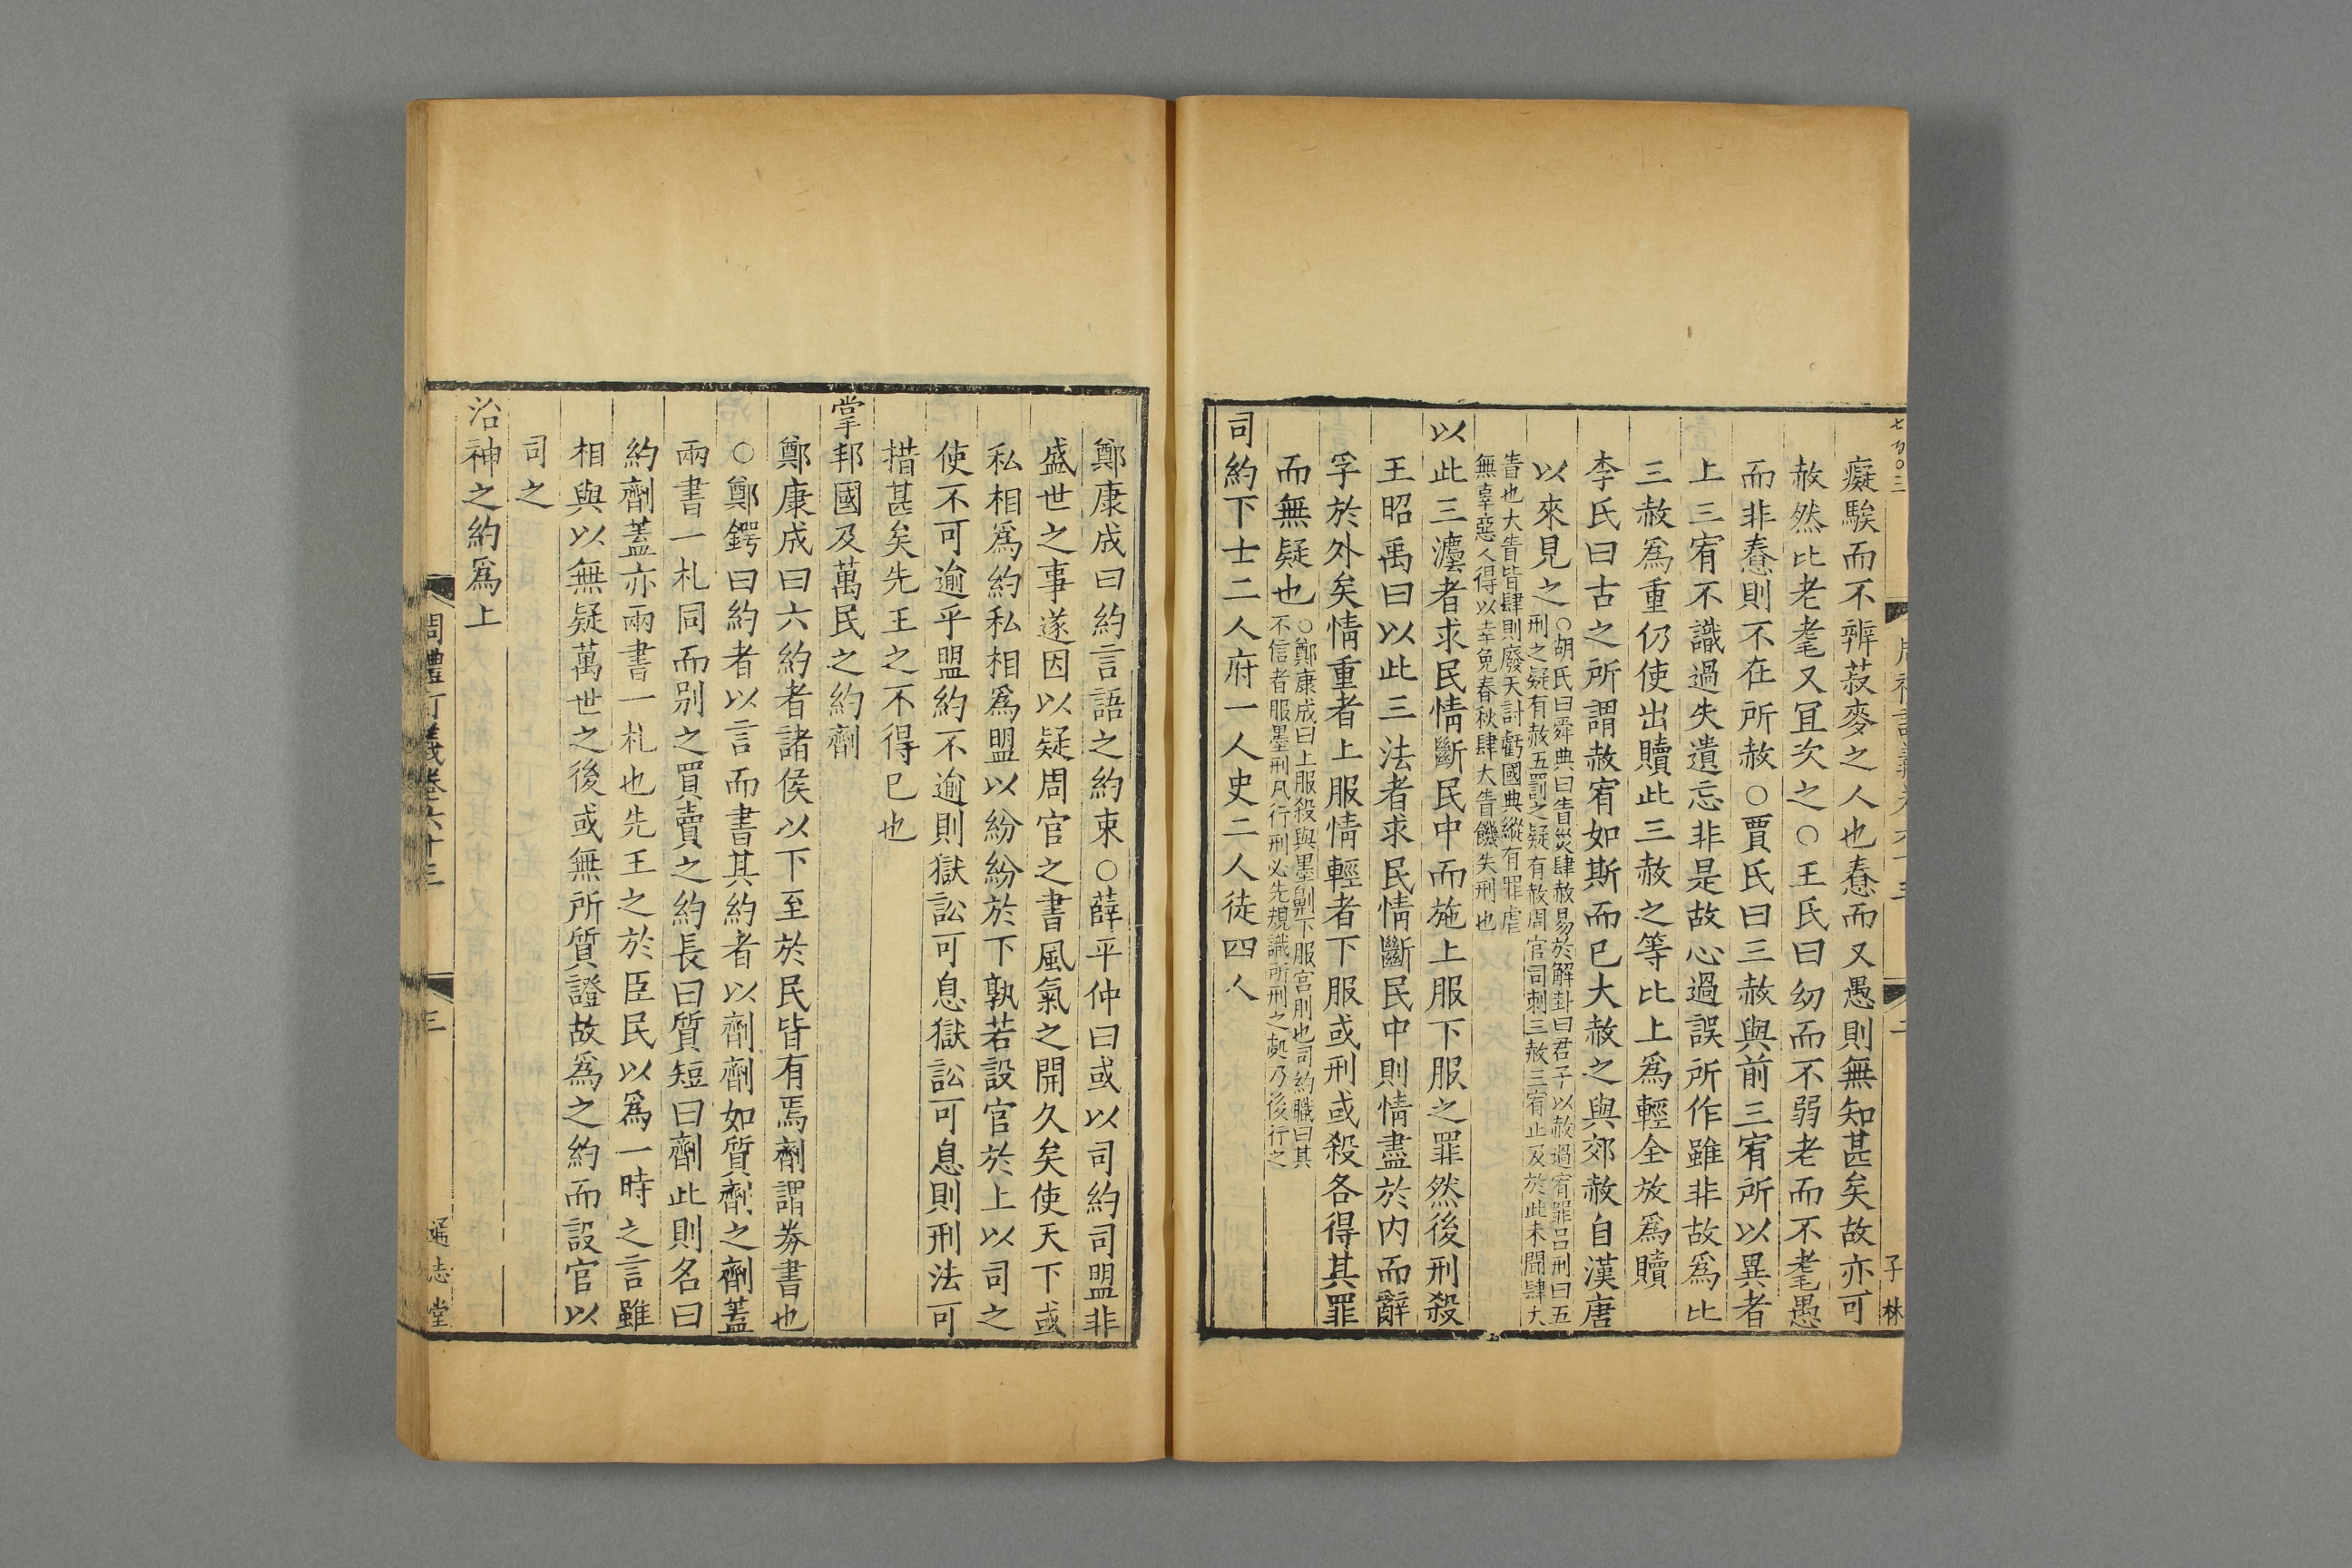 癡騃而不辨菽麥之人也惷而又愚則無知甚矣故亦可
赦然比老耄又冝次之○王氏曰幼而不弱老而不耄愚
而非惷則不在所赦○賈氏曰三赦與前三宥所以異者
上三宥不識過失遺忘非是故心過誤所作雖非故爲比
三赦爲重仍使出贖此三赦之等比上爲輕全放爲贖
李氏曰古之所謂赦宥如斯而已大赦之與郊赦自漢唐
以來見之
○胡氏曰舜典曰眚災肆赦易於解卦曰君子以赦過宥罪吕刑曰五
刑之疑有赦五罰之疑有赦周官司刺三赦三宥止及於此未聞肆大
眚也大眚皆肆則廢天討虧國典縱有罪虐
無辜惡人得以幸免春秋肆大眚譏失刑也
以此三灋者求民情斷民中而施上服下服之罪然後刑殺
王昭禹曰以此三法者求民情斷民中則情盡於内而辭
孚於外矣情重者上服情輕者下服或刑或殺各得其罪
而無疑也
○鄭康成曰上服殺與墨劓下服宮刖也司約職曰其
不信者服墨刑凡行刑必先規識所刑之處乃後行之
司約下士二人府一人史二人徒四人
子林
鄭康成曰約言語之約束○薛平仲曰或以司約司盟非
盛世之事遂因以疑周官之書風氣之開久矣使天下或
私相爲約私相爲盟以紛紛於下孰若設官於上以司之
使不可逾乎盟約不逾則獄訟可息獄訟可息則刑法可
措甚矣先王之不得已也
掌邦國及萬民之約劑
鄭康成曰六約者諸侯以下至於民皆有焉劑謂券書也
○鄭鍔曰約者以言而書其約者以劑劑如質劑之劑蓋
兩書一札同而别之買賣之約長曰質短曰劑此則名曰
約劑蓋亦兩書一札也先王之於臣民以爲一時之言雖
相與以無疑萬世之後或無所質證故爲之約而設官以
司之
治神之約爲上
周禮訂義卷六十三
三
通志堂